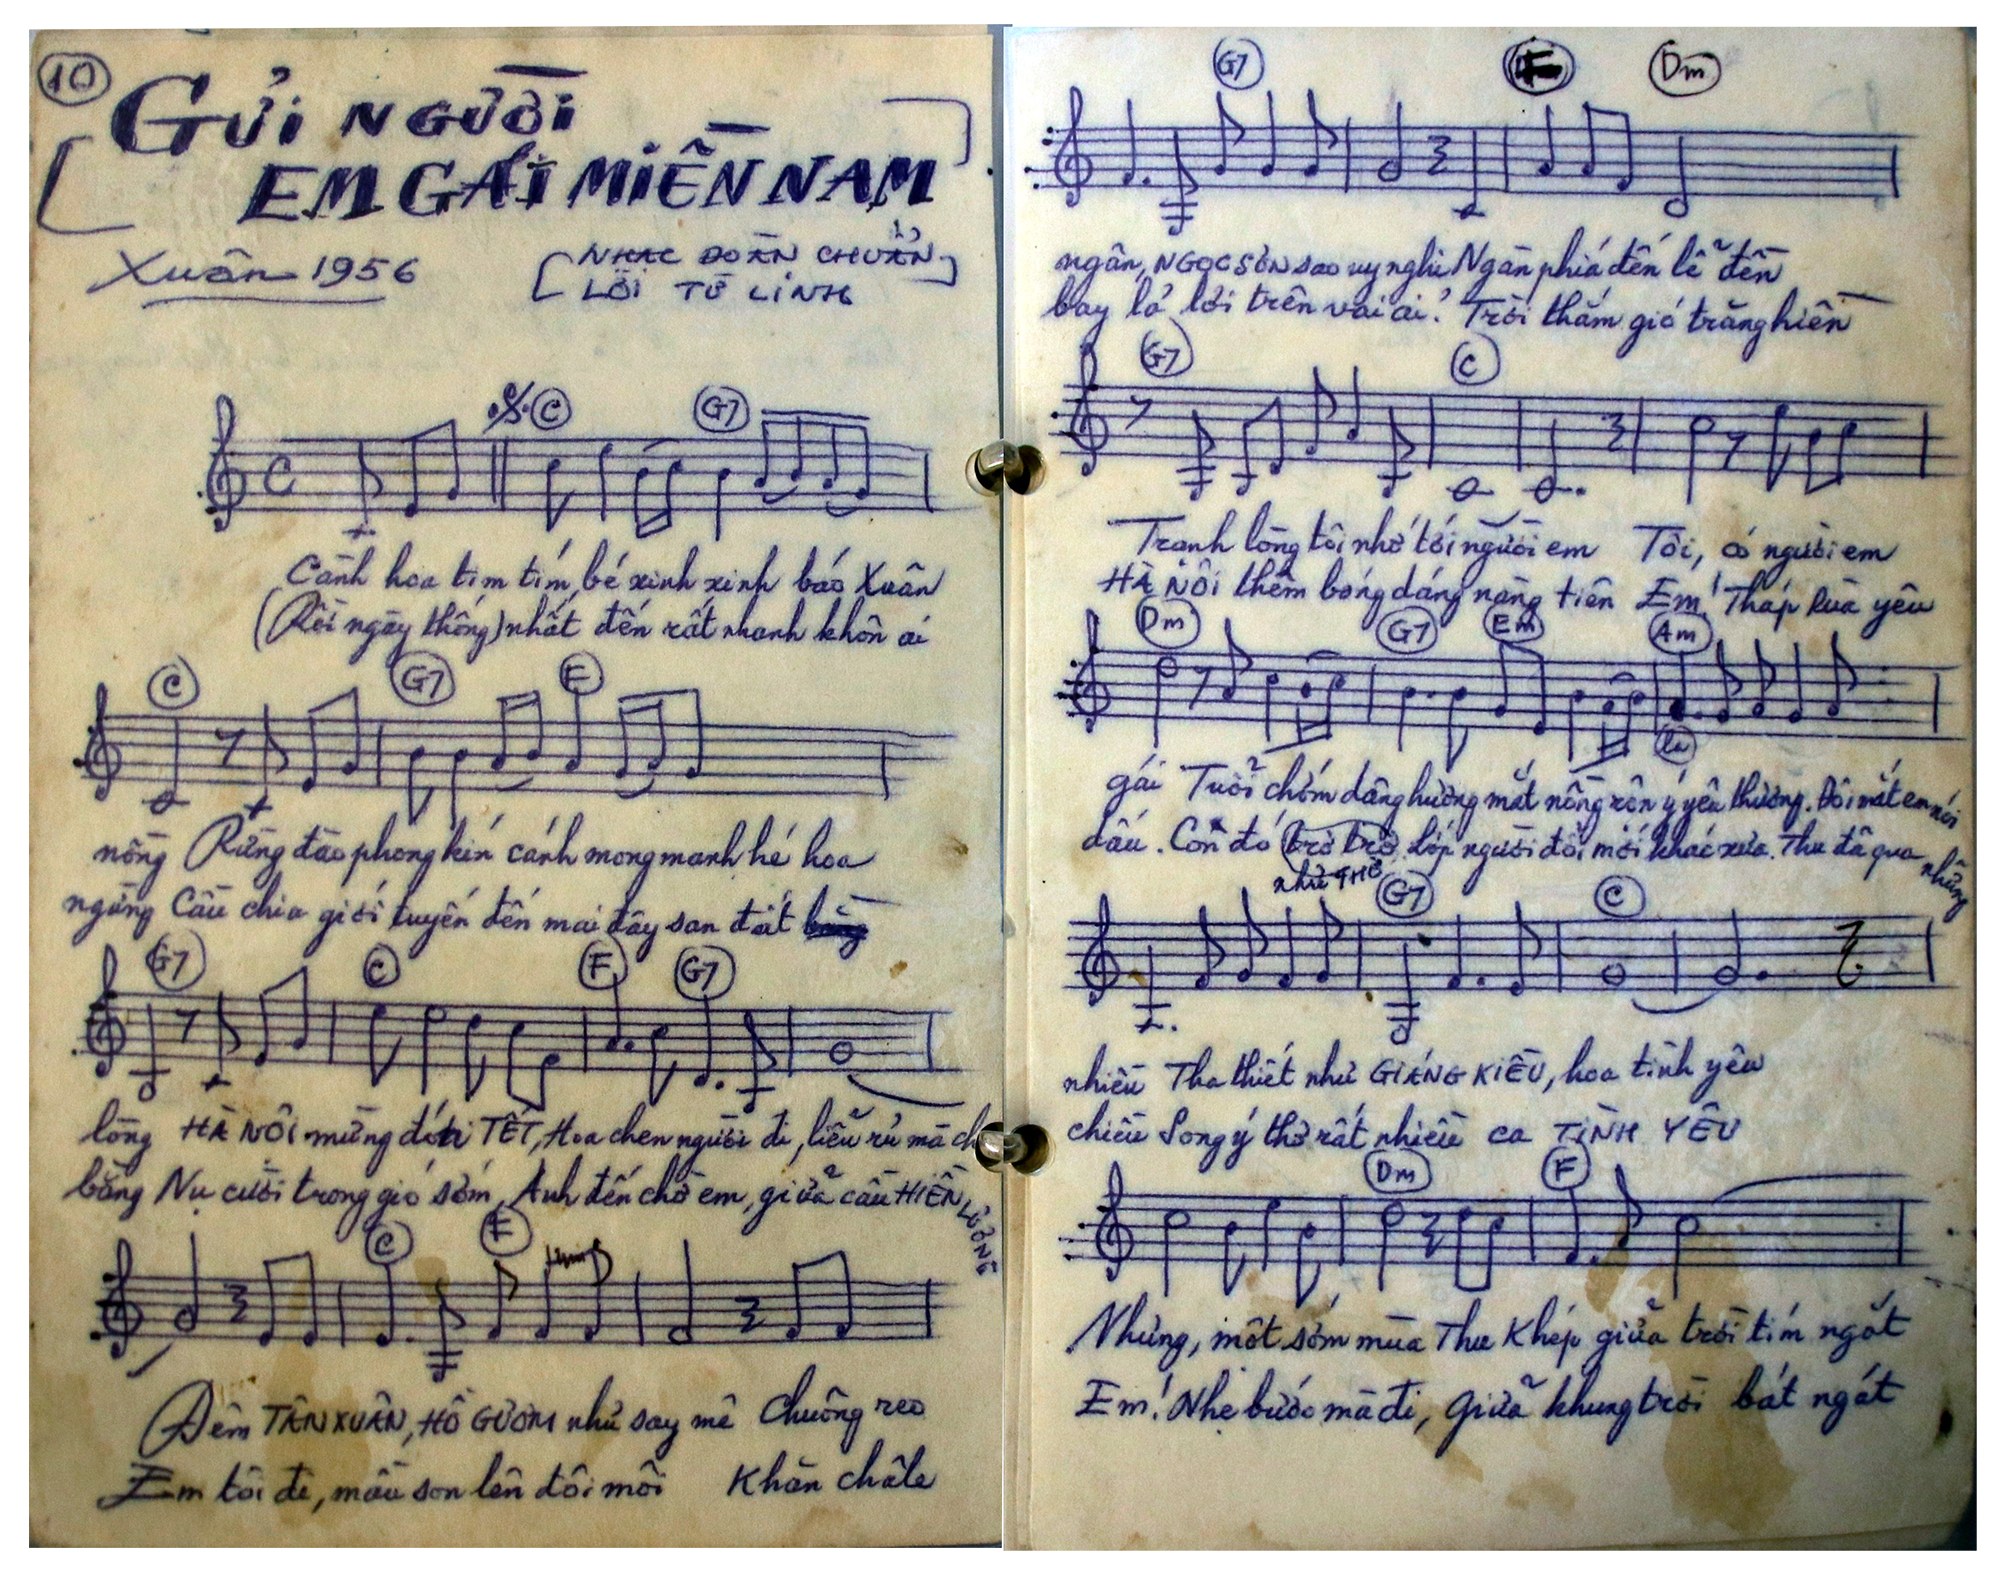 10
GỬI NGƯỜI
EM GÁI MIỀN NAM
Xuân 1956
NHẠC ĐOÀN CHUẨN
LỜI TỪ LINH
C G7
Cành hoa tim tím, bé xinh xinh báo Xuân
(Rồi ngày thống) nhất đến rất nhanh khôn ai
C G7 F
nồng Rừng đào phong kín cánh mong manh hé hoa
ngừng Cầu chia giới tuyến đến mai đây san đất bằng
G7 C F G7
lòng HÀ NỘI mừng đón TẾT, Hoa chen người đi, liễu rủ mà ch
bằng Nụ cười trong gió sớm, Anh đến chờ em, giữa cầu HIỀN LƯƠNG
C F
Đêm TÂN XUÂN, HỒ GƯƠM như say mê Chuông reo
Em tôi đi, mầu son lên đôi môi Khăn châle
G7 F Dm
ngân, NGỌC SƠN sao uy nghi Ngàn phía đến lễ đền
bay lả lơi trên vai ai? Trời thắm gió trăng hiền
G7 C
Tranh lòng tôi nhớ tới người em Tôi, có người em
HÀ NỘI thêm bóng dáng nàng tiên Em! Tháp Rùa yêu
Dm G7 Em Am
la
gái Tuổi chớm dâng hương mắt nồng rộn ý yêu thương. Đôi mắt em nói
dấu. Còn đó trơ trơ lớp người đổi mới khác xưa. Thu đã qua những
như THỜ
G7 C
nhiều Tha thiết như GIÁNG KIỀU, hoa tình yêu
chiều Song ý thơ rất nhiều ca TÌNH YÊU
Dm F
Nhưng, một sớm mùa Thu Khép giữa trời tím ngắt
Em! Nhẹ bước mà đi, Giữa khung trời bát ngát